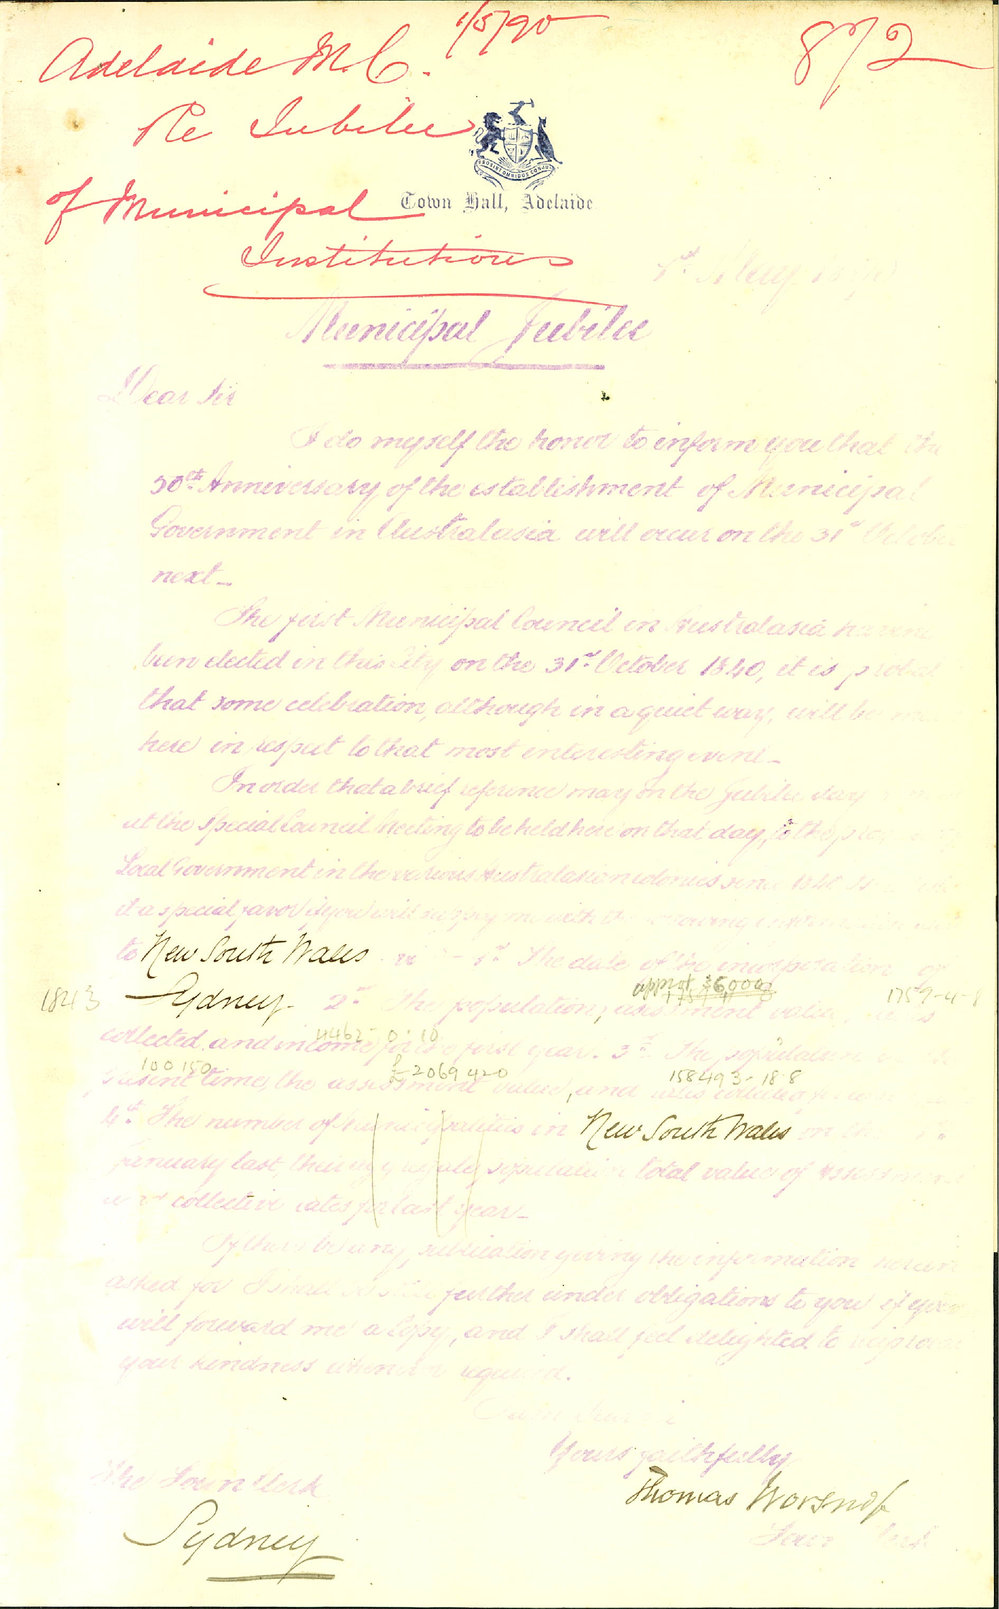 1/5/90
872
Adelaide M.C.
Re Jubilee
of Municipal
Institutions
Town Hall, Adelaide
1st May
Municipal Jubilee
Dear Sir
I do myself the honor to inform you that the
50th Anniversary of the establishment of Municipal
Government in Australasia will occur on the 31st October
next_
The first Municipal Council in Australasia having
been elected in this City on the 31st October 1840, it is
that some celebration, although in a quiet way, will be
here in respect to that most interesting event_
In order that a brief reference may on the Jubilee day
at the Special Council Meeting to be held here on that day, to the
Local Government in the various Australasian colonies since 1840
it a special favor if you will supply me with the following information
to New South Wales 1st The date of the incorporation of
1843 Sydney. 2nd The population, assessment value, rates
approx 6000 1759-4-8
collected, and income for the first year. 3rd The population
4462-0-10
present time, the assessment value, and rates collected
100 150 £2069420 158493-18-8
4th The number of Municipalities in New South Wales on the 1st
January last, their aggregate population total value of assessment
collective rates for last year_
If there be any publication giving the information herein
asked for I shall be still further under obligations to you if you
will forward me a Copy, and I shall feel delighted to reciprocate
your kindness whenever required.
Yours faithfully
Thomas Worsnop
Town Clerk
The Town Clerk
Sydney